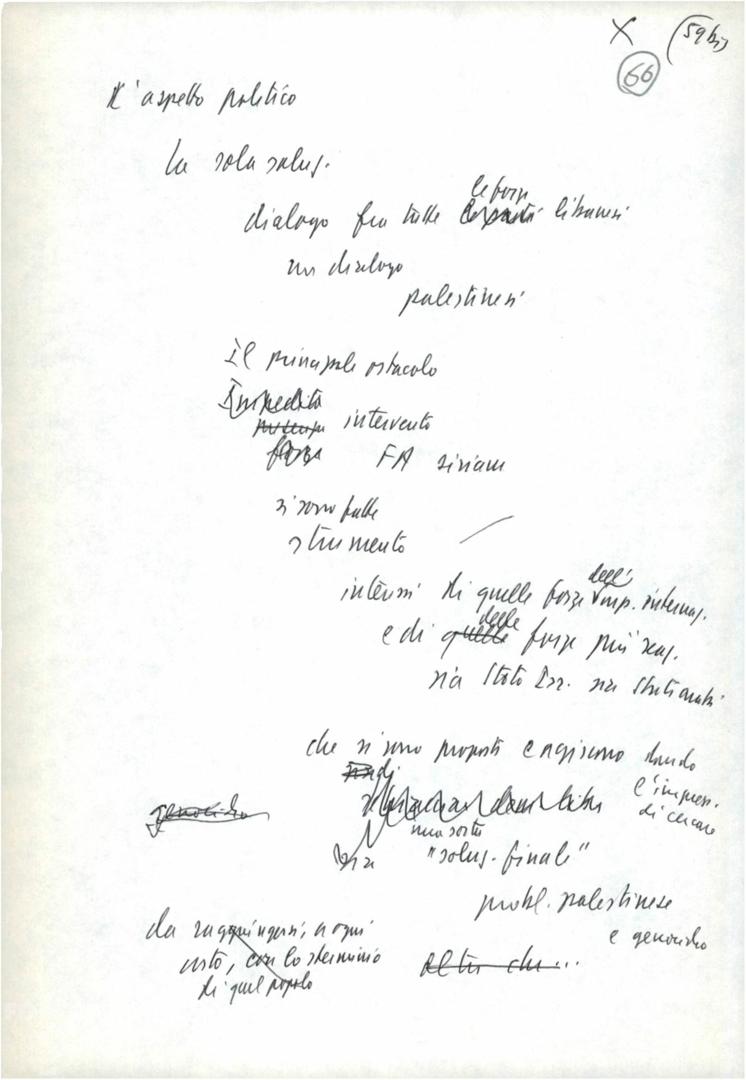 X (59 bis
66
L'aspetto politico
La sola soluz.
le forze
dialogo fra tutte libanesi
un dialogo
palestinesi
Il principale ostacolo
Impedito
intervento
forze FA siriane
si sono fatte
strumento
interessi di quelle forze dell' imp. internaz.
e di quelle delle forze più reaz.
sia Stato Isr. sia Stati arabi
che si sono proposti e agiscono dando
l'impress.
di cercare
genocidio
una sorta
"soluz. finale"
probl. palestinese
e genocidio
da raggiungersi, a ogni
costo, con lo sterminio
di quel popolo
altro che...